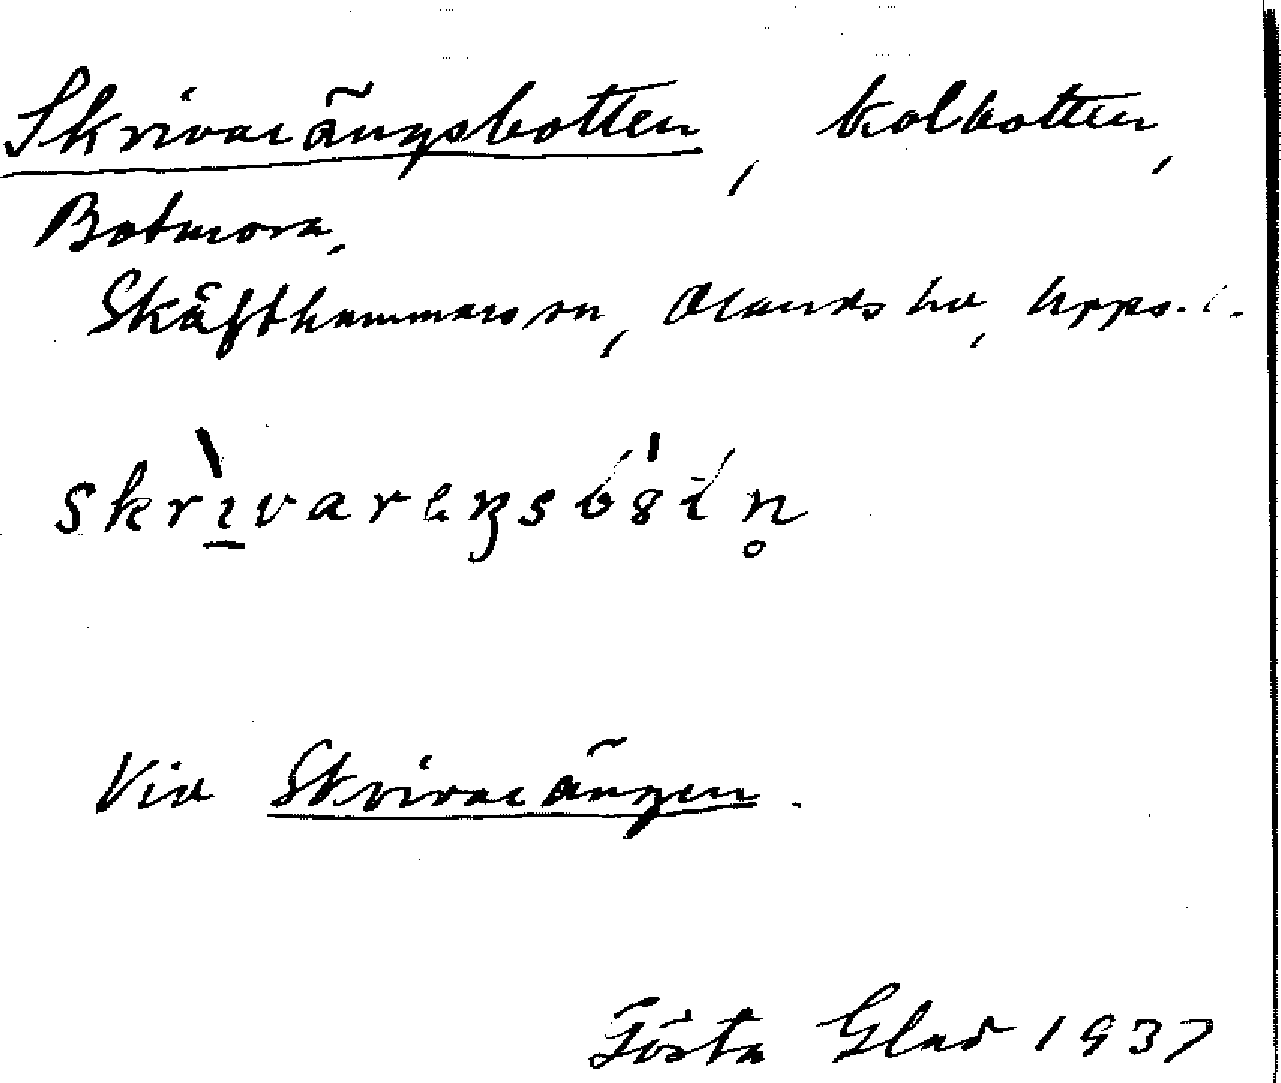 Skrivarängsbotten, kolbotten,
Botmora,
Skäfthammars sn, Olands hd, Upps. l.
skrìvareŋsbótn̥
Vid Skrivarängen.
Gösta Glad 1937